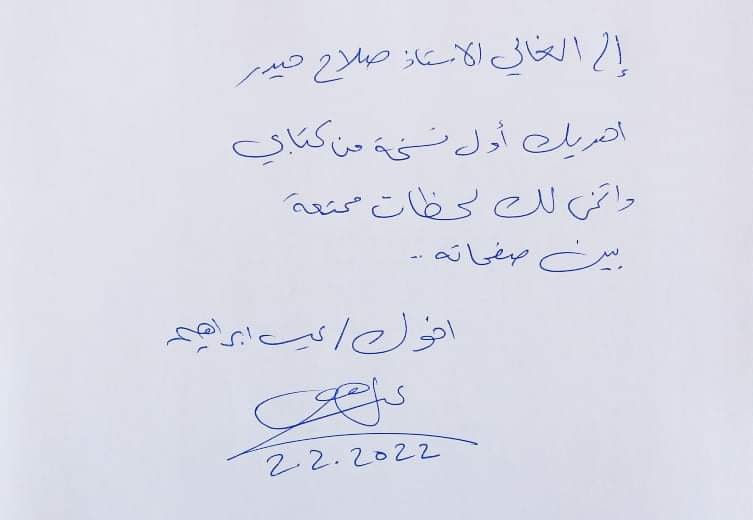 إلى الغالي الاستاذ صلاح حيدر
اهديك أول نسخة من كتابي
واتمنى لك لحظات ممتعة
بين صفحاته ..
اخوك / ابراهيم
2.2.2022